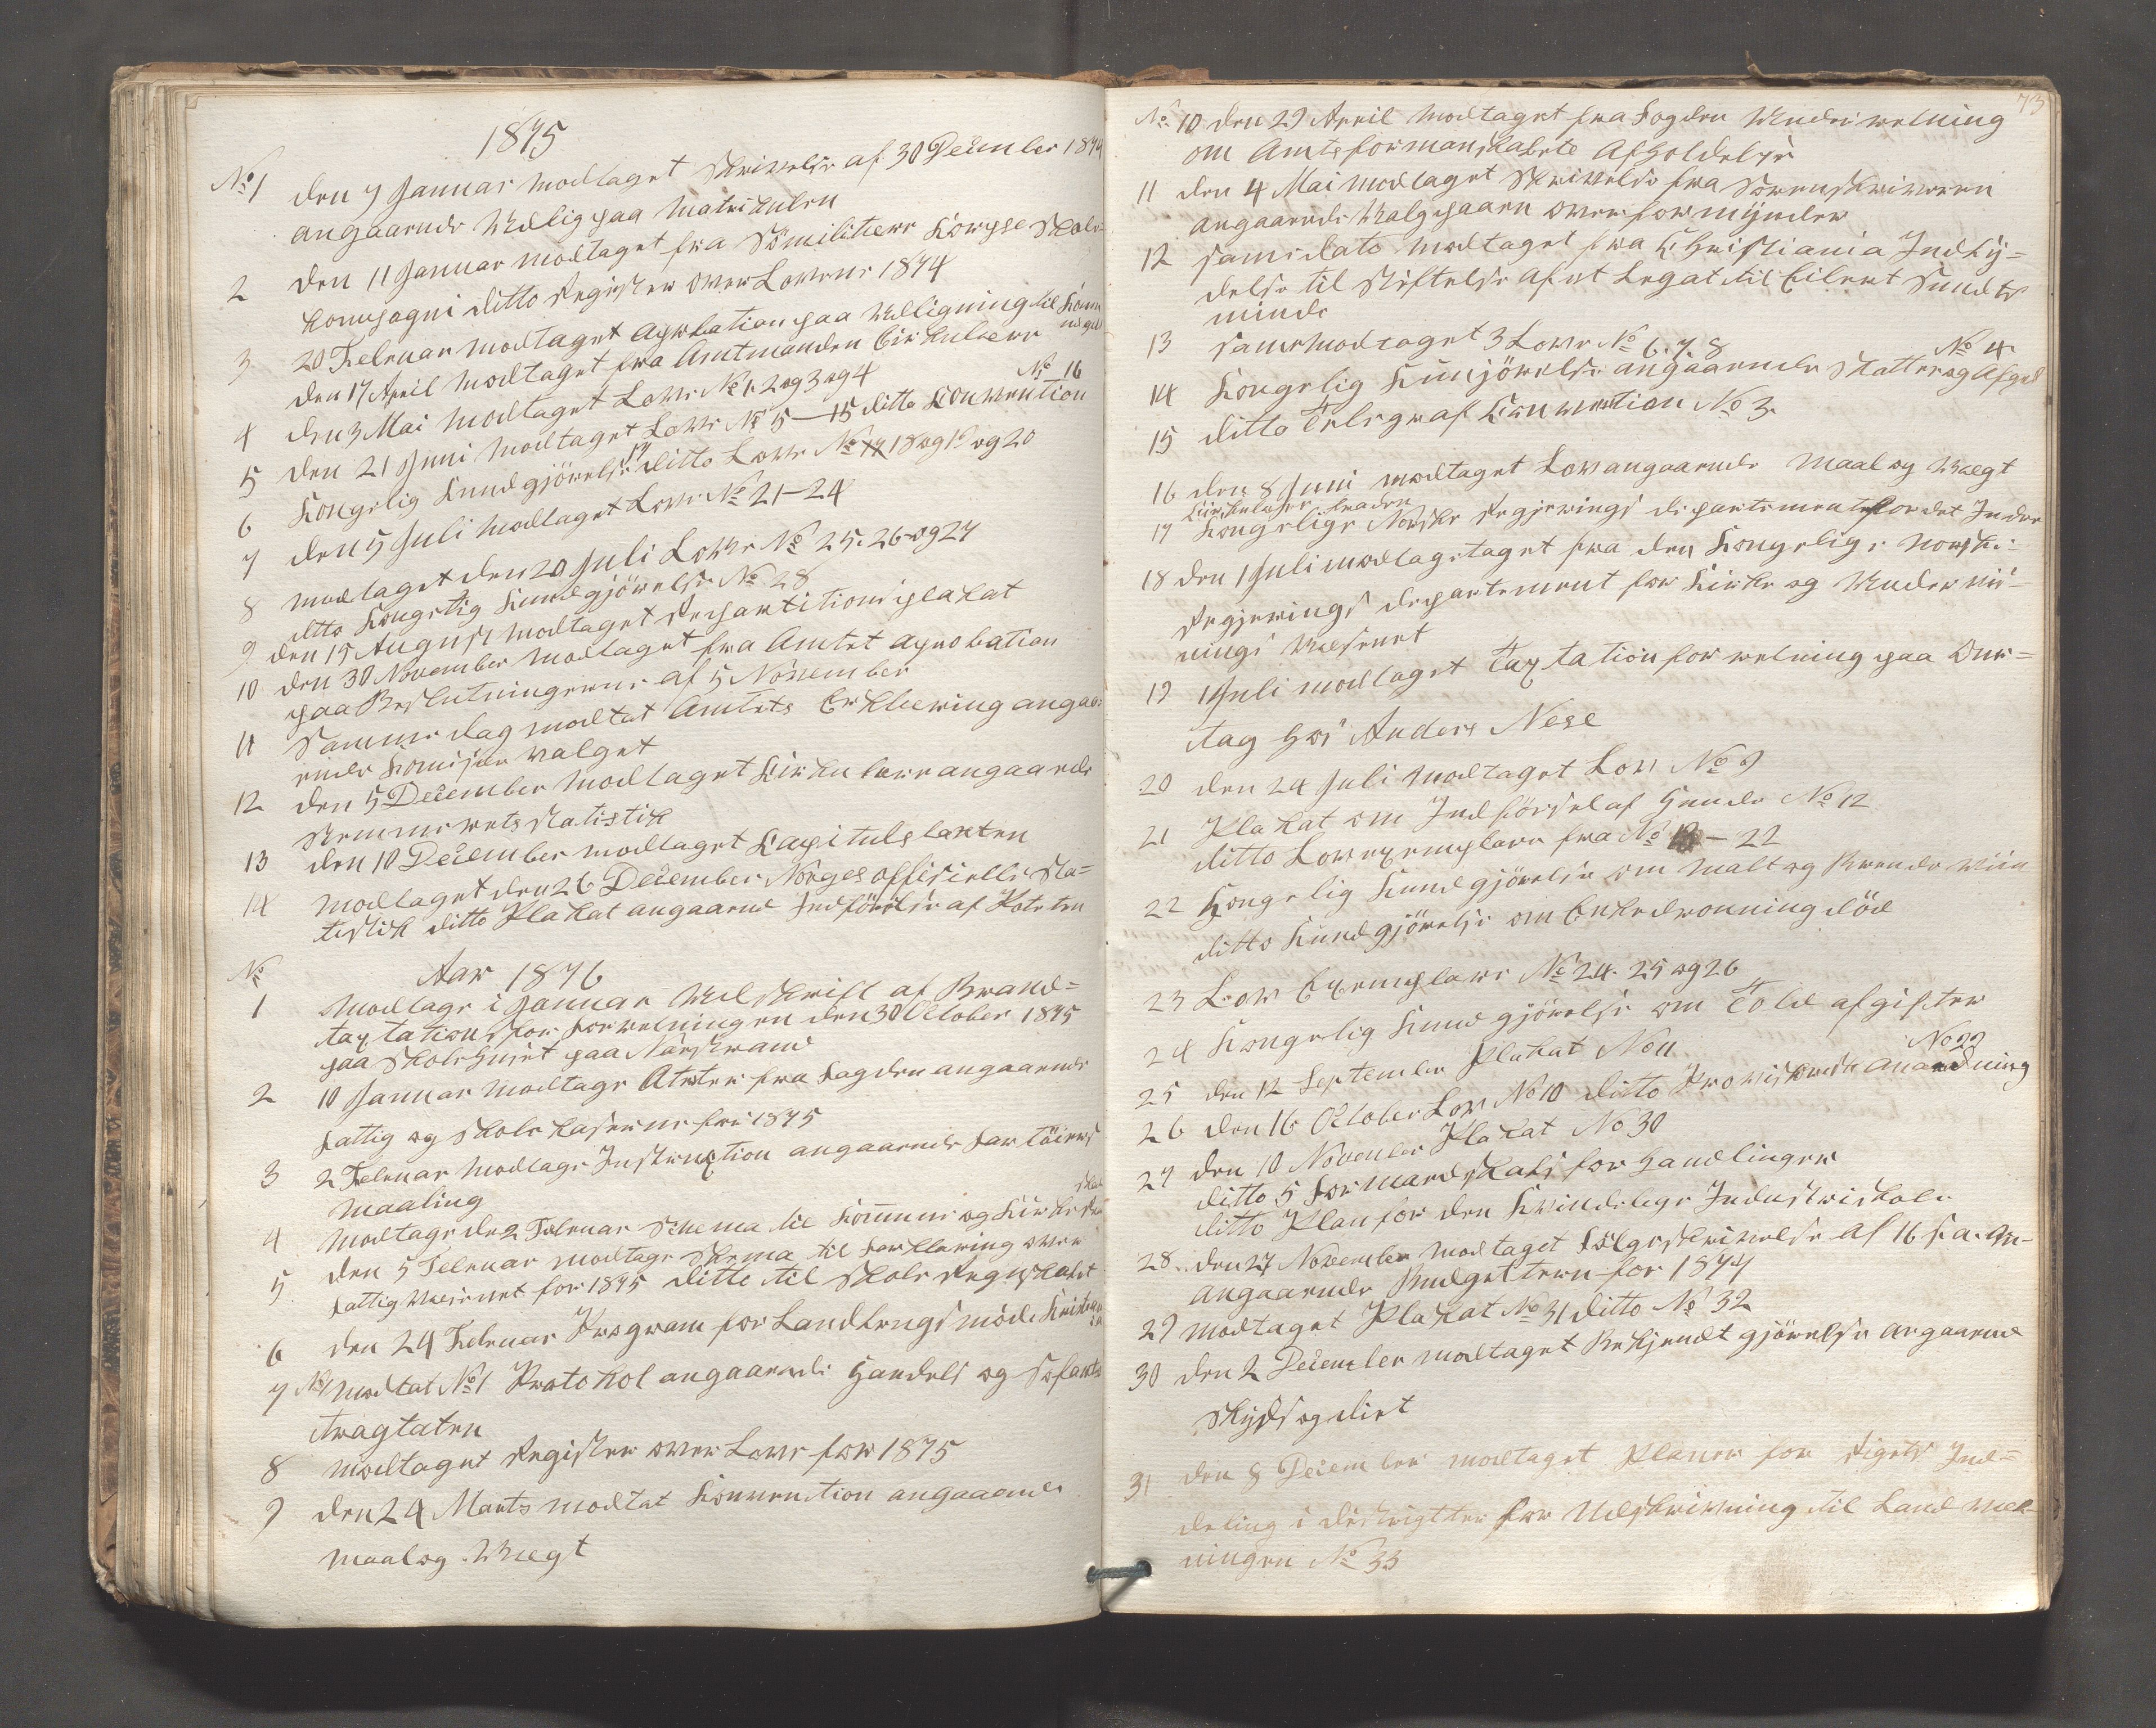 1875
No 1 den 7 Januar modtaget Skrivelse af 30 December 1874
angaarende Udlig paa Matrikulen
2 den 11 Januar modtaget fra Sömilitiere Korpse Skole
Kompagni ditto Register over Lovene 1874
3 20 Februar modtaget Aprobation paa Udligning til Kom
den 17 April modtaget fra Amtmanden Cirkulære
4 den 3 Mai modtaget Love No 1. 2 og 3 og 4
No 16
5 den 21 Juni modtaget Love No 5 – 15 ditto Konvention
6 Kongelig Kundgjörelse 17 ditto Love No 18 og 19 og 20
7 den 5 Juli modtaget Love No 21–24
8 modtaget den 20 Juli Love No 25. 26 og 27
ditto Kongelig Kundgjörelse No 28
9 den 15 August modtaget Repartitions plakat
10 den 30 November modtaget fra Amtet Aprobation
paa Beslutningerne af 5 November
11 Samme dag modtat Amtets Erklæring angaa=
ende Komisær valget
12 den 5 December modtaget Cirkulære angaaende
Stemmerets statistik
13 den 10 December modtaget Kapitulstaxten
14 modtaget den 26 December Norges officielle Sta=
tistik ditto Plakat angaaend Indförelse af Poteten
No Aar 1876
1 Modtage i Januar Udskrift af Brand=
taxtations for forretningen den 30 October 1875
paa Skolehuset paa Närstrand
2 10 Januar modtage Atester fra Fogden angaaende
fattig og Skolekaserne for 1875
3 2 Februar modtage Instruxtion angaaende Fartöiers
maaling
4 Modtage de 2 Februar Schema til Kommune og Kirke
5 den 5 Februar modtage Skema til Forklaring over
Fattig Væsenet for 1875 ditto til Skole Regnskabet
6 den 24 Februar Program for Landbrugs möde
7 No modtat No 1 Protokol angaaende Handels og Söfarts
Tragtaten
8 modtaget Register over Love for 1875
9 den 24 Marts modtat Konvention angaaende
maal og Vægt
73
No 10 den 29 April modtaget fra Fogden Underretning
om Amtsformanskabets Afholdelse
11 den 4 Mai modtaget Skrivelse fra Sorenskriveren
angaaende Valg paa en overformynder
12 Samedato modtaget fra Christiania Indby=
delse til Stiftelse af et Legat til Eilert Sundts
minde
13 Same modtaget 3 Love No 6. 7. 8
No 4
14 Kongelig Kunjörelse angaaende Skatter og Afgif
15 ditto Telegraf Konvention No 3.
16 den 8 Juni modtaget Lov angaaende Maal og Vægt
Cirkulære fra den
17 Kongelige Norske Regjerings departement for det Indre
18 den 1 Juli modtagetaget fra den Kongelige norske
Regjerings departement for Kirke og Undervis=
nings Væsenet
19 1 Juli modtaget Taxtation forretning paa Ons=
tag hos Anders Nese
20 den 24 Juli modtaget Lov No 9
21 Plakat om Indförsel af Hunde No 12
ditto Lov exemplare fra No 13 – 22
22 Kongelig Kundgjörelse om Malt og Brende viin
ditto Kundgjörelse om Enkedronning död
23 Lov Exemplare No 24. 25 og 26
24 Kongelig Kundgjörelse om Told afgifter
25 den 12 September Plakat No 11
No 29
26 den 16 October Lov No 10 ditto Provisorisk Anordning
27 den 10 November Plakat No 30
ditto 5 Formandskabs forhandlinger
ditto Plan for den Kvindelige Industriskole
28 den 27 November modtaget Fölgeskrivelse af 16 f. a. m.
angaaende Budgetteren for 1877
29 modtaget Plakat No 31 ditto No 32
30 den 2 December modtaget Bekjendtgjörelse angaaend
Skyds og diet
31 den 8 December modtaget Planer for Rigets Ind=
deling i distrigtter for Udskrivning til Land vær
ningen No 33